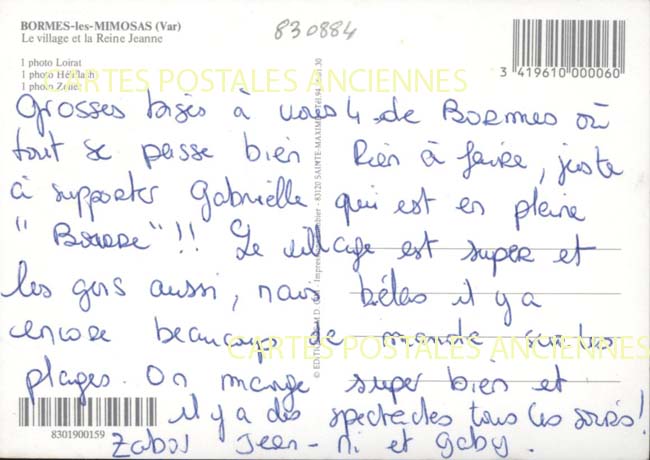 BORMES-les-MIMOSAS (Var)
Le village et la Reine Jeanne
830884
1 photo Loirat
1 photo Hélflash
1 photo Zenet
3 419610 000060
CARTES POSTALES ANCIENNES
Grosses bises à vous 4 de BORMES où
tout se passe bien Rien à faire, juste
à supporter Gabrielle qui est en pleine
" "!! Le village est super et
les gens aussi, mais hélas il y a
encore beaucoup de monde sur les
plages. On mange super bien et
il y a des spectacles tous les soirs!
Jean-Mi et Gaby.
CARTES POSTALES ANCIENNES
8301900159
83120 SAINTE-MAXIME